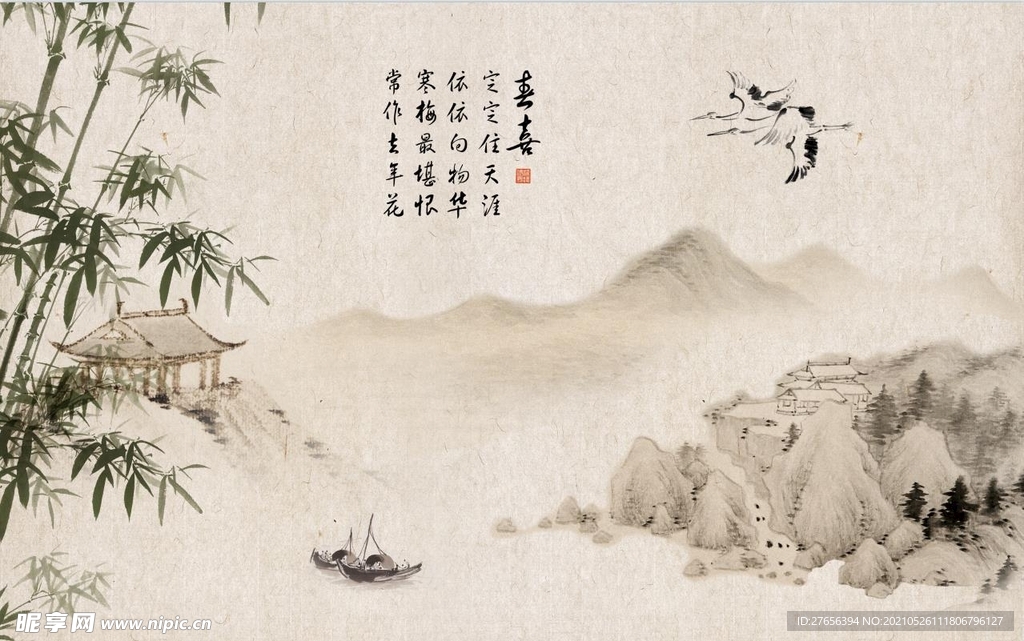 春喜
定定住天涯
依依向物华
寒梅最堪恨
常作去年花
昵享网 www.nipic.cn
ID:27656394 NO:20210526111806796127